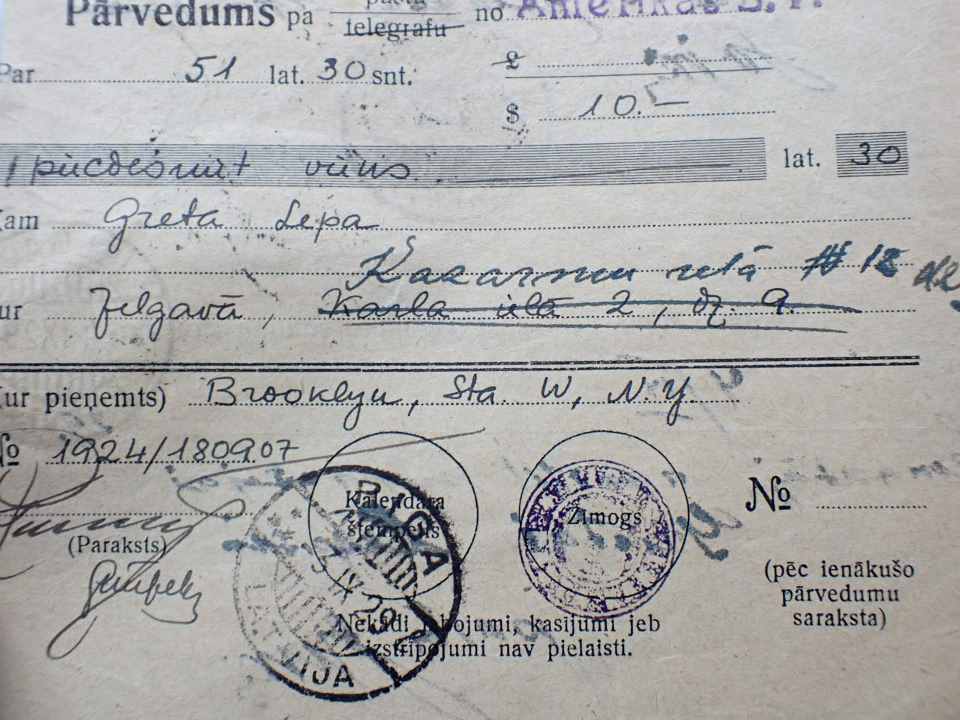 Pārvedums pa telegrafu no Amerikas S. V.
Par 51 lat. 30 snt. £
$ 10.—
piecdesmit viens lat. 30
Kam Greta Lepa
Kazarmu ielā # 12
Kur Jelgavā, Karla ielā 2, dz. 9.
(Kur pieņemts) Brooklyn, Sta. W, N.Y.
№ 1924/180907
Kalendāra štempelis
Zīmogs
№
(Paraksts)
RIGA
3 IX 29
LATVIJA
(pēc ienākušo pārvedumu saraksta)
Nekādi labojumi, kasijumi jeb
izstrīpojumi nav pielaisti.